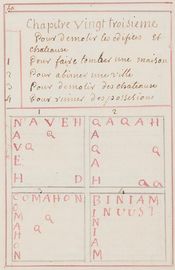 Chapitre Vingt troisieme
Pour demolir les edifices et
chateaux
1 Pour faire tomber une maison
2 Pour abimer une ville
3 Pour demolir des chateaux
4 Pour ruiner des possessions
1 2
NAVEH QAQAH
A a A
V a Q a
E A
H D H a a
3 4
COMAHON BINIAM
O a I N U U S T
M N
A a I
H A
O M
N